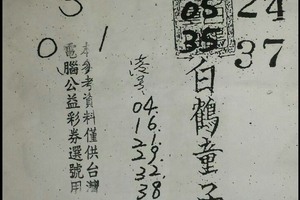 3
0 1
05
35
24
37
白鶴童子
凌晨
04.
16.
19.
22.
32.
38
本參考資料僅供台灣
電腦公益彩券選號用